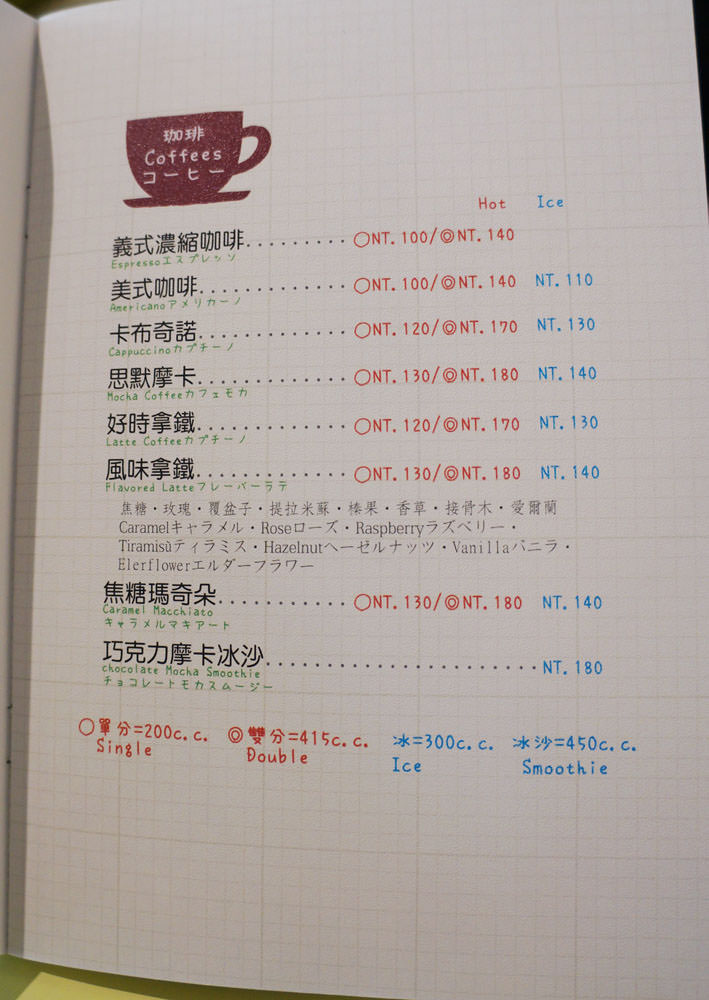 珈琲
Coffees
コーヒー
Hot Ice
義式濃縮咖啡.......... ○NT.100/◎NT.140
Espressoエスプレッソ
美式咖啡............. ○NT.100/◎NT.140 NT.110
Americanoアメリカーノ
卡布奇諾............. ○NT.120/◎NT.170 NT.130
Cappuccinoカプチーノ
思默摩卡............. ○NT.130/◎NT.180 NT.140
Mocha Coffeeカフェモカ
好時拿鐵............. ○NT.120/◎NT.170 NT.130
Latte Coffeeカプチーノ
風味拿鐵............. ○NT.130/◎NT.180 NT.140
Flavored Latteフレーバーラテ
焦糖・玫瑰・覆盆子・提拉米蘇・榛果・香草・接骨木・愛爾蘭
Caramelキャラメル・Roseローズ・Raspberryラズベリー・
Tiramisùティラミス・Hazelnutヘーゼルナッツ・Vanillaバニラ・
Elerflowerエルダーフラワー
焦糖瑪奇朵........... ○NT.130/◎NT.180 NT.140
Caramel Macchiato
キャラメルマキアート
巧克力摩卡冰沙........................NT.180
chocolate Mocha Smoothie
チョコレートモカスムージー
○單分=200c.c. ◎雙分=415c.c. 冰=300c.c. 冰沙=450c.c.
Single Double Ice Smoothie